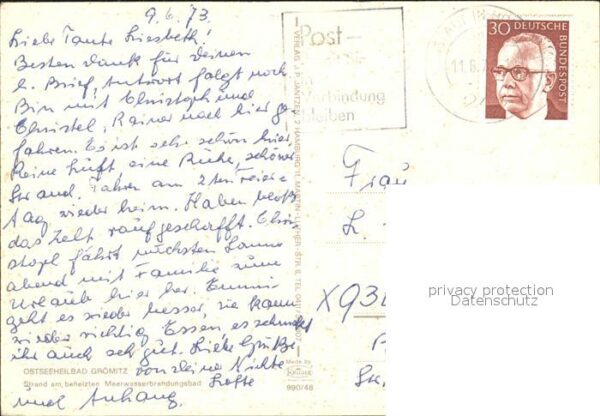 9.6.73
Liebe Tante Liesbeth!
Besten dank für deinen
l. Brief, Antwort folgt noch.
Bin mit Christoph und
Christel, Rainer nach hier ge-
fahren. Es ist sehr schön hier
Reine Luft eine Ruhe, schöner
Strand. Fahren am 2ten Feier-
tag wieder heim. Haben bloß
das Zelt raufgeschafft. Chri-
stoph fährt nächsten Sonn-
abend mit Familie zum
Urlaub hier her.
geht es wieder besser, sie kann
wieder richtig Essen es schmeckt
ihr auch sehr gut. Liebe Grüße
von deine Nichte
Lotte
und Anhang.
OSTSEEHEILBAD GRÖMITZ
Strand am beheizten Meerwasserbrandungsbad
990/48
VERLAG J.P. JANTZEN, 2 HAMBURG 11, MARTIN-LUTHER-STR. 6, TEL.
Post-
Verbindung
bleiben
11.6.
30 DEUTSCHE
BUNDESPOST
Frau
L.
X 93
privacy protection
Datenschutz